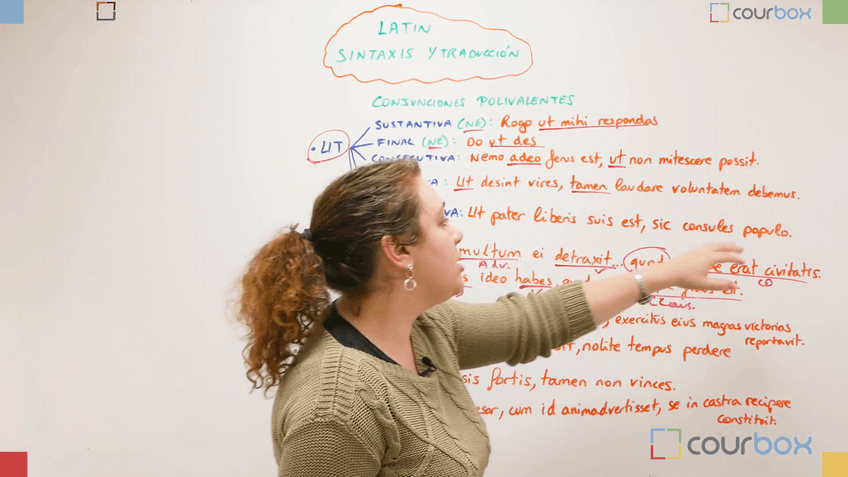 courbox
LATIN
SINTAXIS Y TRADUCCIÓN
CONJUNCIONES POLIVALENTES
• UT
SUSTANTIVA (NE): Rogo ut mihi respondas
FINAL (NE): Do ut des
CONSECUTIVA: Nemo adeo ferus est, ut non mitescere possit.
VA: Ut desint vires, tamen laudare voluntatem debemus.
VA: Ut pater liberis suis est, sic consules populo.
multum ei detraxit... quod erat civitatis.
Adv. CD
ideo habes
, exercitus eius magnas victorias
reportavit.
, nolite tempus perdere
sis fortis, tamen non vinces.
, cum id animadvertisset, se in castra recipere
constituit.
courbox